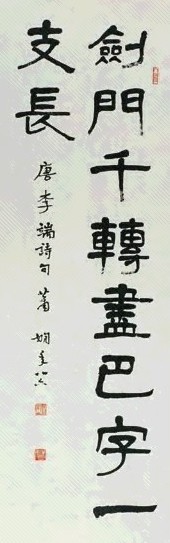 劍門千轉盡巴字一
支長
唐李端詩句 蕭嫻